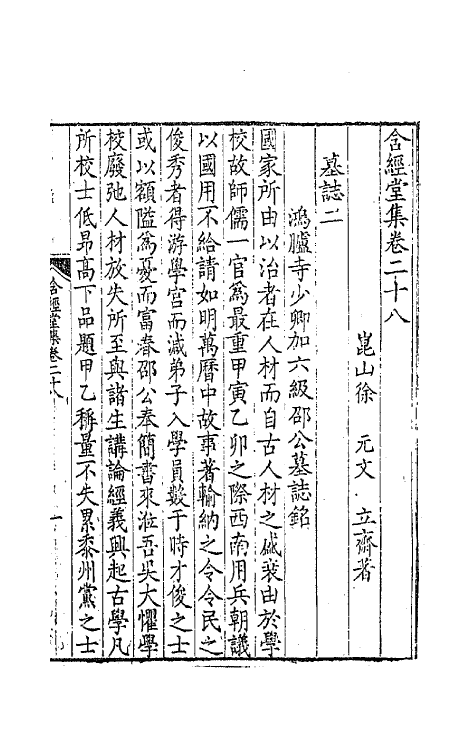 含經堂集卷二十八
崑山徐 元文 立齋著
墓誌二
鴻臚寺少卿加六級邵公墓誌銘
國家所由以治者在人材而自古人材之盛衰由於學
校故師儒一官爲最重甲寅乙卯之際西南用兵朝議
以國用不給請如明萬曆中故事著輸納之令令民之
俊秀者得游學宮而減弟子入學員數于時才俊之士
或以額隘爲憂而富春邵公奉簡書來涖吾吳大懼學
校廢弛人材放失所至與諸生講論經義興起古學凡
所校士低昂高下品題甲乙稱量不失累黍州黨之士
含經堂集卷二十八 一